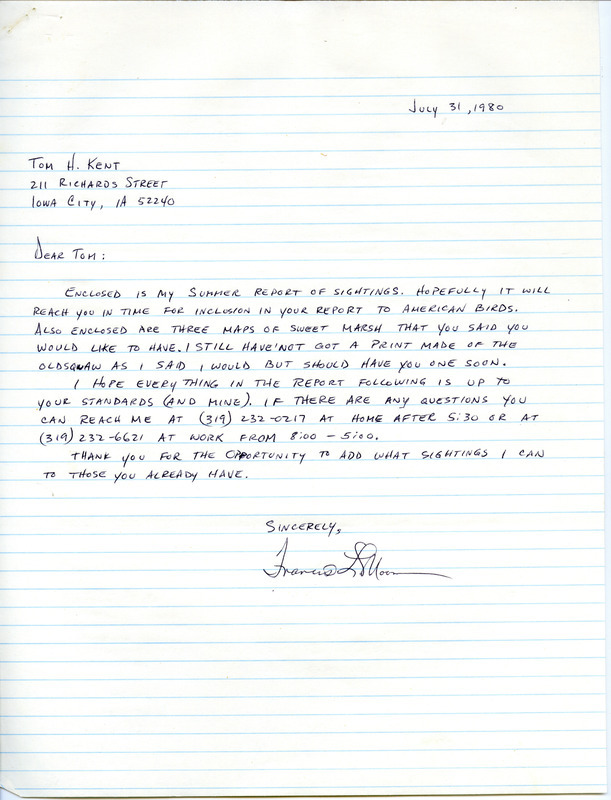 July 31, 1980
Tom H. Kent
211 Richards Street
Iowa City, IA 52240
Dear Tom:
Enclosed is my Summer Report of sightings. Hopefully it will
reach you in time for inclusion in your report to American Birds.
Also enclosed are three maps of Sweet Marsh that you said you
would like to have. I still have'not got a print made of the
oldsquaw as I said I would but should have you one soon.
I hope every thing in the report following is up to
your standards (and mine). If there are any questions you
can reach me at (319) 232-0217 at home after 5:30 or at
(319) 232-6621 at work from 8:00 - 5:00.
Thank you for the opportunity to add what sightings I can
to those you already have.
Sincerely,
Francis L. Moore